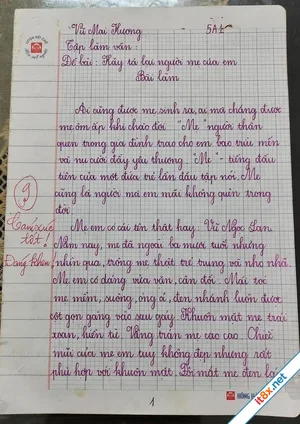 Vũ Mai Hương 5A2
Tập làm văn:
Đề bài: Hãy tả lại người mẹ của em
Bài làm
Ai cũng được mẹ sinh ra, ai mà chẳng được
mẹ ôm ấp khi chào đời. "Mẹ" người thân
quen trong gia đình trao cho em bao trìu mến
và nụ cười đầy yêu thương. "Mẹ" - tiếng đầu
tiên của một đứa trẻ lần đầu tập nói. Mẹ
cũng là người mà em mãi không quên trong
đời.
9
Cảm xúc
tốt!
Đáng khen
Mẹ em có cái tên thật hay. Vũ Ngọc Lan.
Năm nay, mẹ đã ngoài ba mươi tuổi nhưng
nhìn qua, trông mẹ thật trẻ trung và nhỏ nhả.
Mẹ em có dáng vừa vặn, cân đối. Mái tóc
mẹ mềm, suông, óng ả, đen nhánh luôn được
cột gọn gàng vào sau gáy. Khuôn mặt mẹ trái
xoan, hiền từ. Vầng trán mẹ cao cao. Chiếc
mũi của mẹ em tuy không đẹp nhưng rất
phù hợp với khuôn mặt. Đôi mắt mẹ đen lá
1
it8x.net